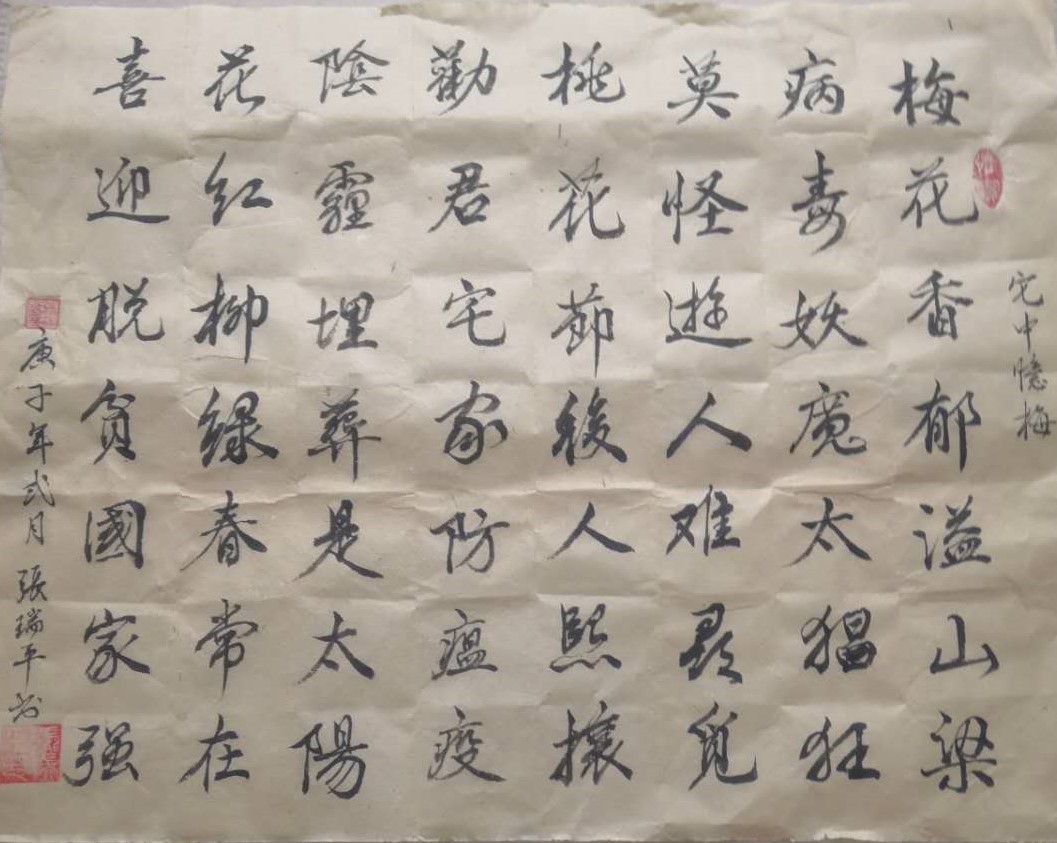 宅中憶梅
梅花香郁溢山梁
病毒妖魔太猖狂
莫怪遊人难尋覓
桃花節後人熙攘
勸君宅家防瘟疫
陰霾埋葬是太陽
花红柳緑春常在
喜迎脱貧國家强
庚子年弍月 張瑞平书